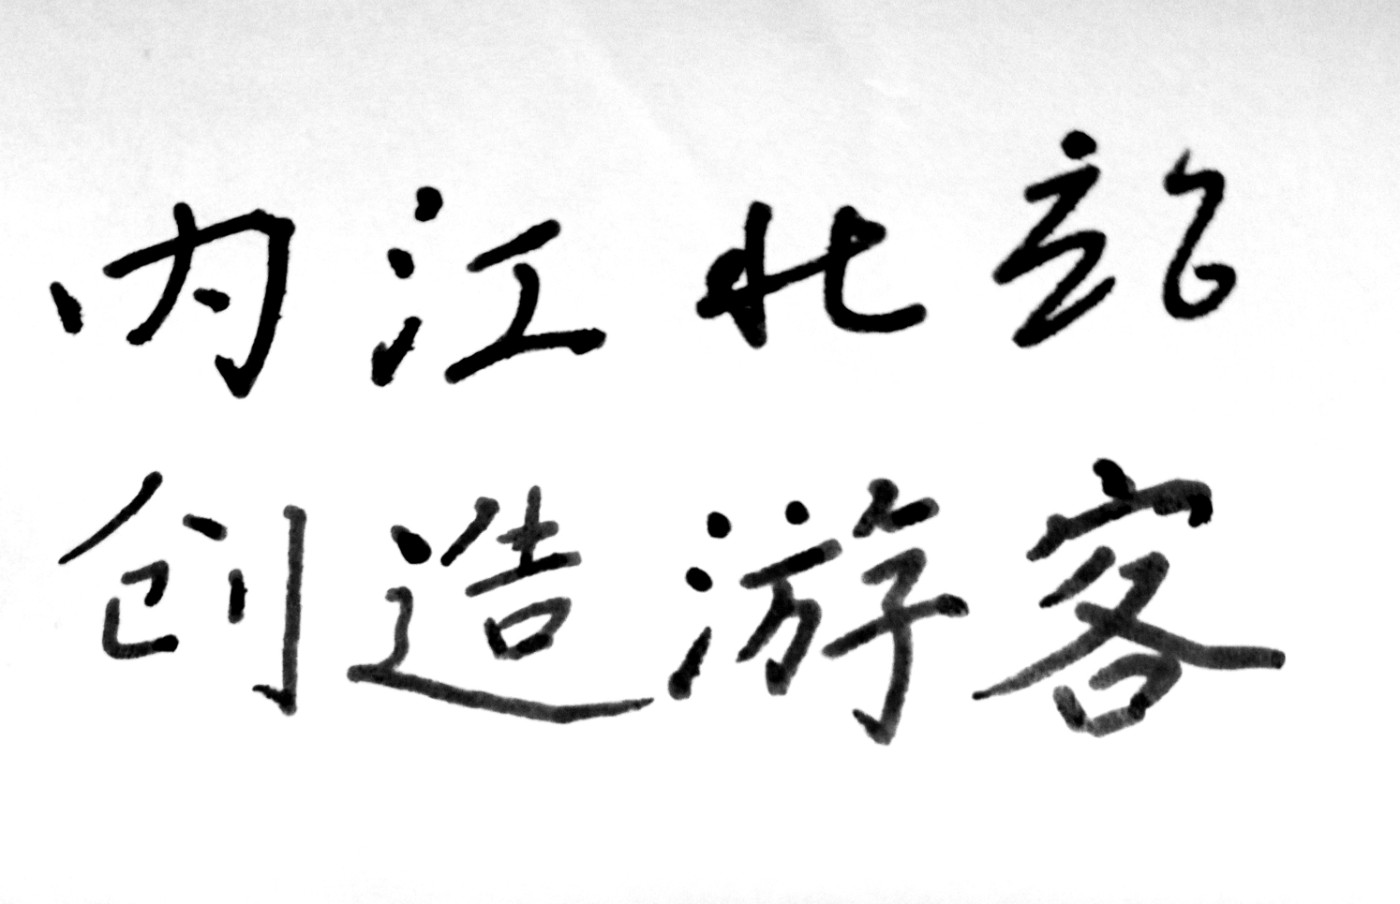 内江北站
创造游客